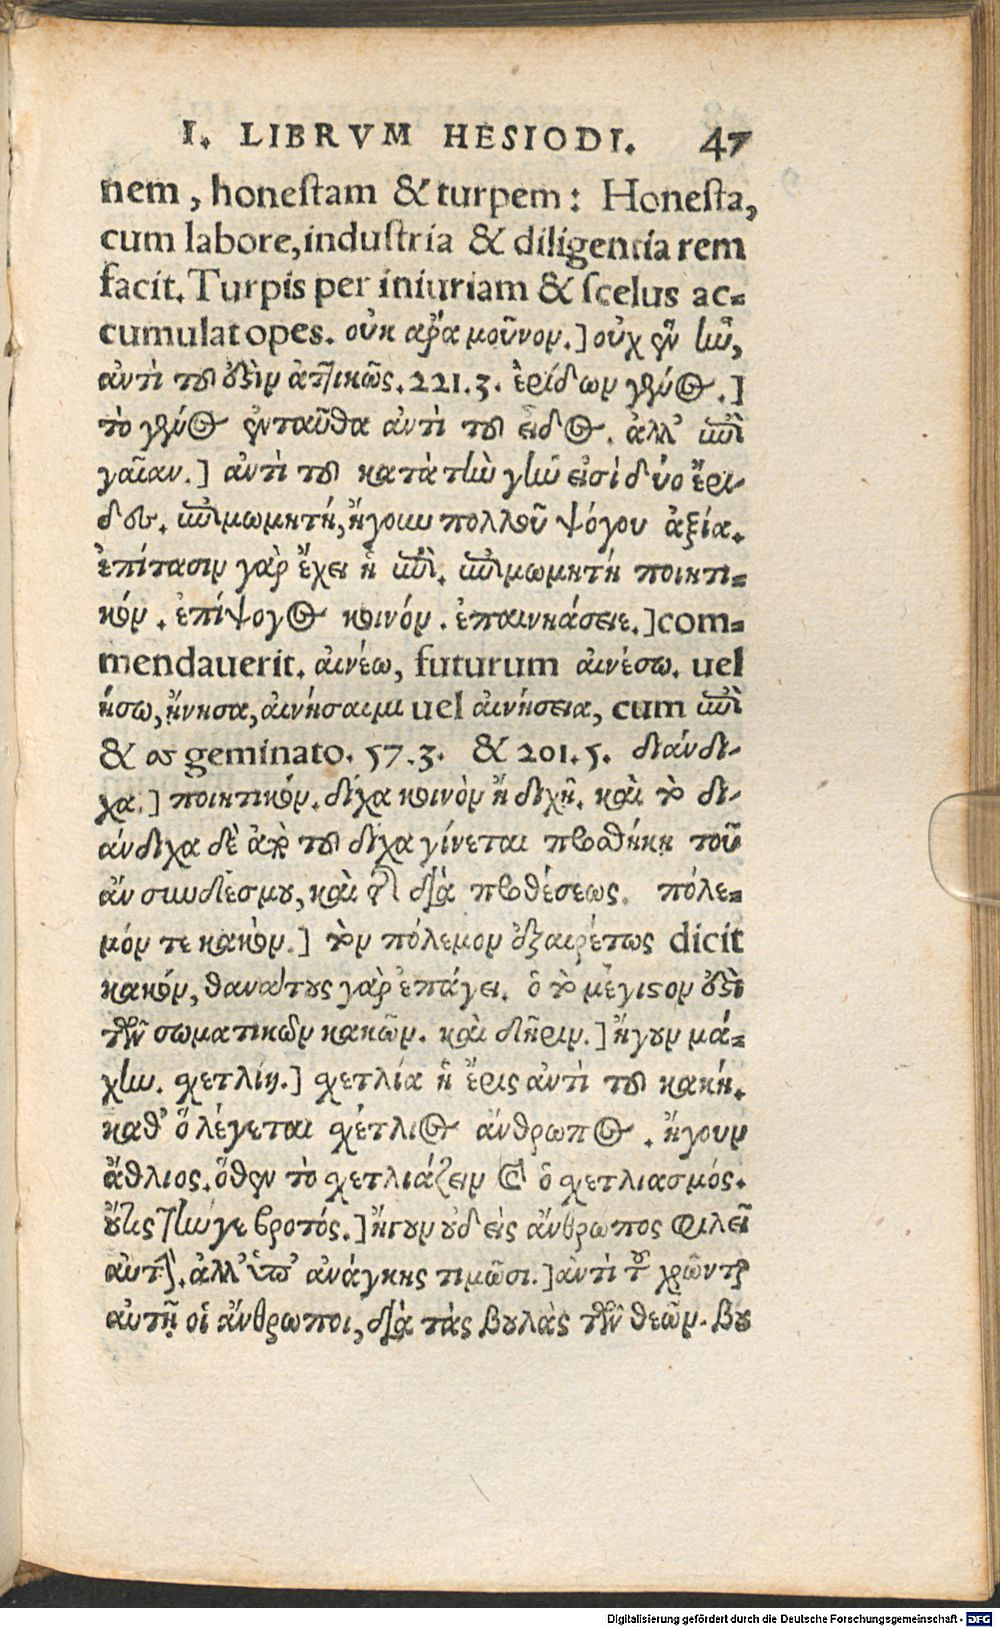 I. LIBRVM HESIODI. 47
nem, honeſtam & turpem: Honeſta,
cum labore, induſtria & diligentia rem
facit. Turpis per iniuriam & ſcelus ac=
cumulat opes. οὐκ ἀῤ́α μοῦνον.] οὐχ ἓν ἦν,
ἀντὶ τοῦ ὑπῆρχεν ἀττικῶς. 221.3. ἐρίδων γένος.]
τὸ γένος ἐνταῦθα ἀντὶ τοῦ εἶδος. ἀλλ' ἐπὶ
γαῖαν.] ἀντὶ τοῦ κατὰ τὴν γῆν εἰσὶ δύο ἔρι-
δες. ἐπιμωμητή, ἤγουν πολλοῦ ψόγου ἀξία.
ἐπίτασιν γὰρ ἔχει ἡ ἐπί. ἐπιμωμητή ποιητι=
κόν. ἐπίψογος κοινόν. ἐπαινήσειε.] com=
mendauerit. αἰνέω, futurum αἰνέσω. uel
ήσω, ᾔνησα, αἰνήσαιμι uel αἰνήσεια, cum ἐπὶ
& σ geminato. 57.3. & 201.5. διάνδι-
χα.] ποιητικόν. δίχα κοινὸν ἢ διχῆ. καὶ τὸ δι-
άνδιχα δὲ ἀπὸ τοῦ δίχα γίνεται προσθήκῃ τοῦ
ἀν συνδέσμου, καὶ τῆς διὰ προθέσεως. πόλε=
μόν τε κακόν.] τὸν πόλεμον ἐξαιρέτως dicit
κακόν, θανάτους γὰρ ἐπάγει. ὃ τὸ μέγιστον ἐστὶ
τῶν σωματικῶν κακῶν. καὶ δῆριν.] ἤγουν μά=
χην. σχετλίη.] σχετλία ἡ ἔρις ἀντὶ τοῦ κακή.
καθ' ὃ λέγεται σχέτλιος ἄνθρωπος. ἤγουν
ἄθλιος. ὅθεν τὸ σχετλιάζειν καὶ ὁ σχετλιασμός.
οὔτις τήνγε βροτός.] ἤγουν οὐδεὶς ἄνθρωπος φιλεῖ
αὐτήν. ἀλλ' ὑπ' ἀνάγκης τιμῶσι.] ἀντὶ τοῦ χρῶνται
αὐτῇ οἱ ἄνθρωποι, διὰ τὰς βουλὰς τῶν θεῶν. βου
Digitalisierung gefördert durch die Deutsche Forschungsgemeinschaft - DFG